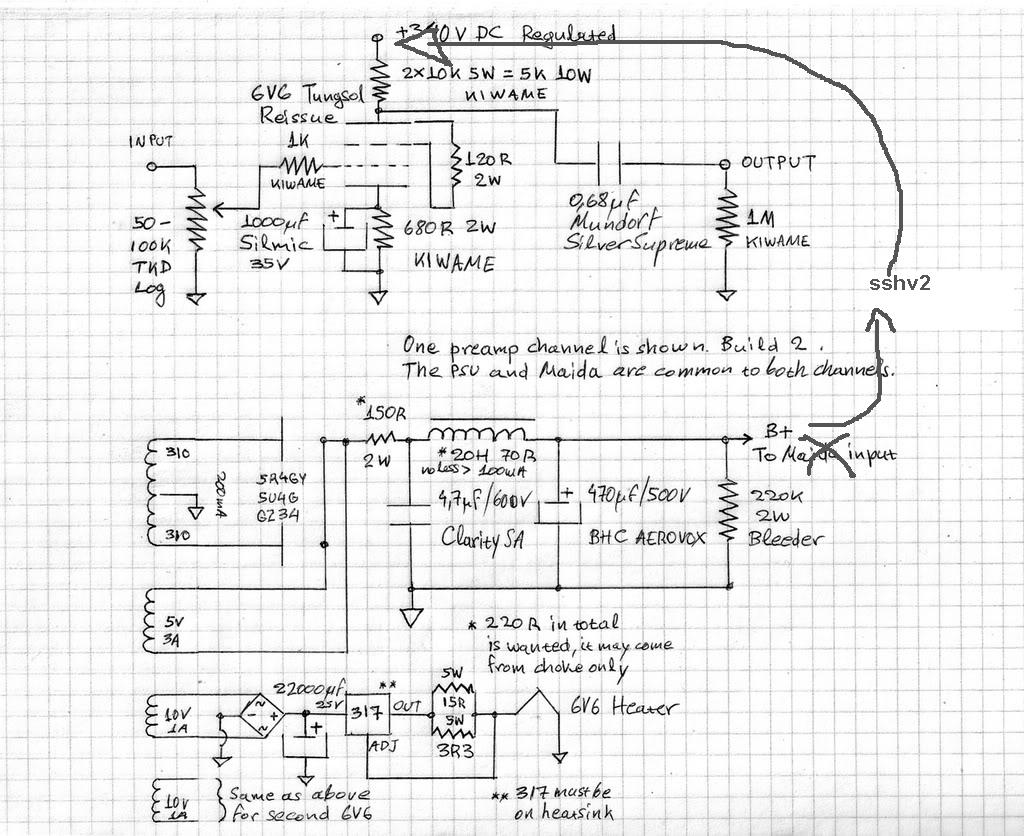 +340V DC Regulated
2x10K 5W = 5K 10W
KIWAME
6V6 Tungsol
Reissue
INPUT
1K
KIWAME
120R
2W
OUTPUT
50-
100K
TKD
Log
1000µF
Silmic
35V
680R 2W
KIWAME
0,68µF
Mundorf
SilverSupreme
1M
KIWAME
sshv2
One preamp channel is shown. Build 2.
The PSU and Maida are common to both channels.
*
150R
2W
310
200mA
310
5R4GY
5U4G
GZ34
* 20H 70R
no less > 100mA
B+
To Maida input
4,7µF/600V
Clarity SA
+
470µF/500V
BHC AEROVOX
220K
2W
Bleeder
5V
3A
* 220R in total
is wanted, it may come
from choke only
10V
1A
~
- +
~
22000µF
25V
+
**
317
OUT
ADJ
5W
15R
5W
3R3
6V6 Heater
10V
1A
Same as above
for second 6V6
** 317 must be
on heatsink